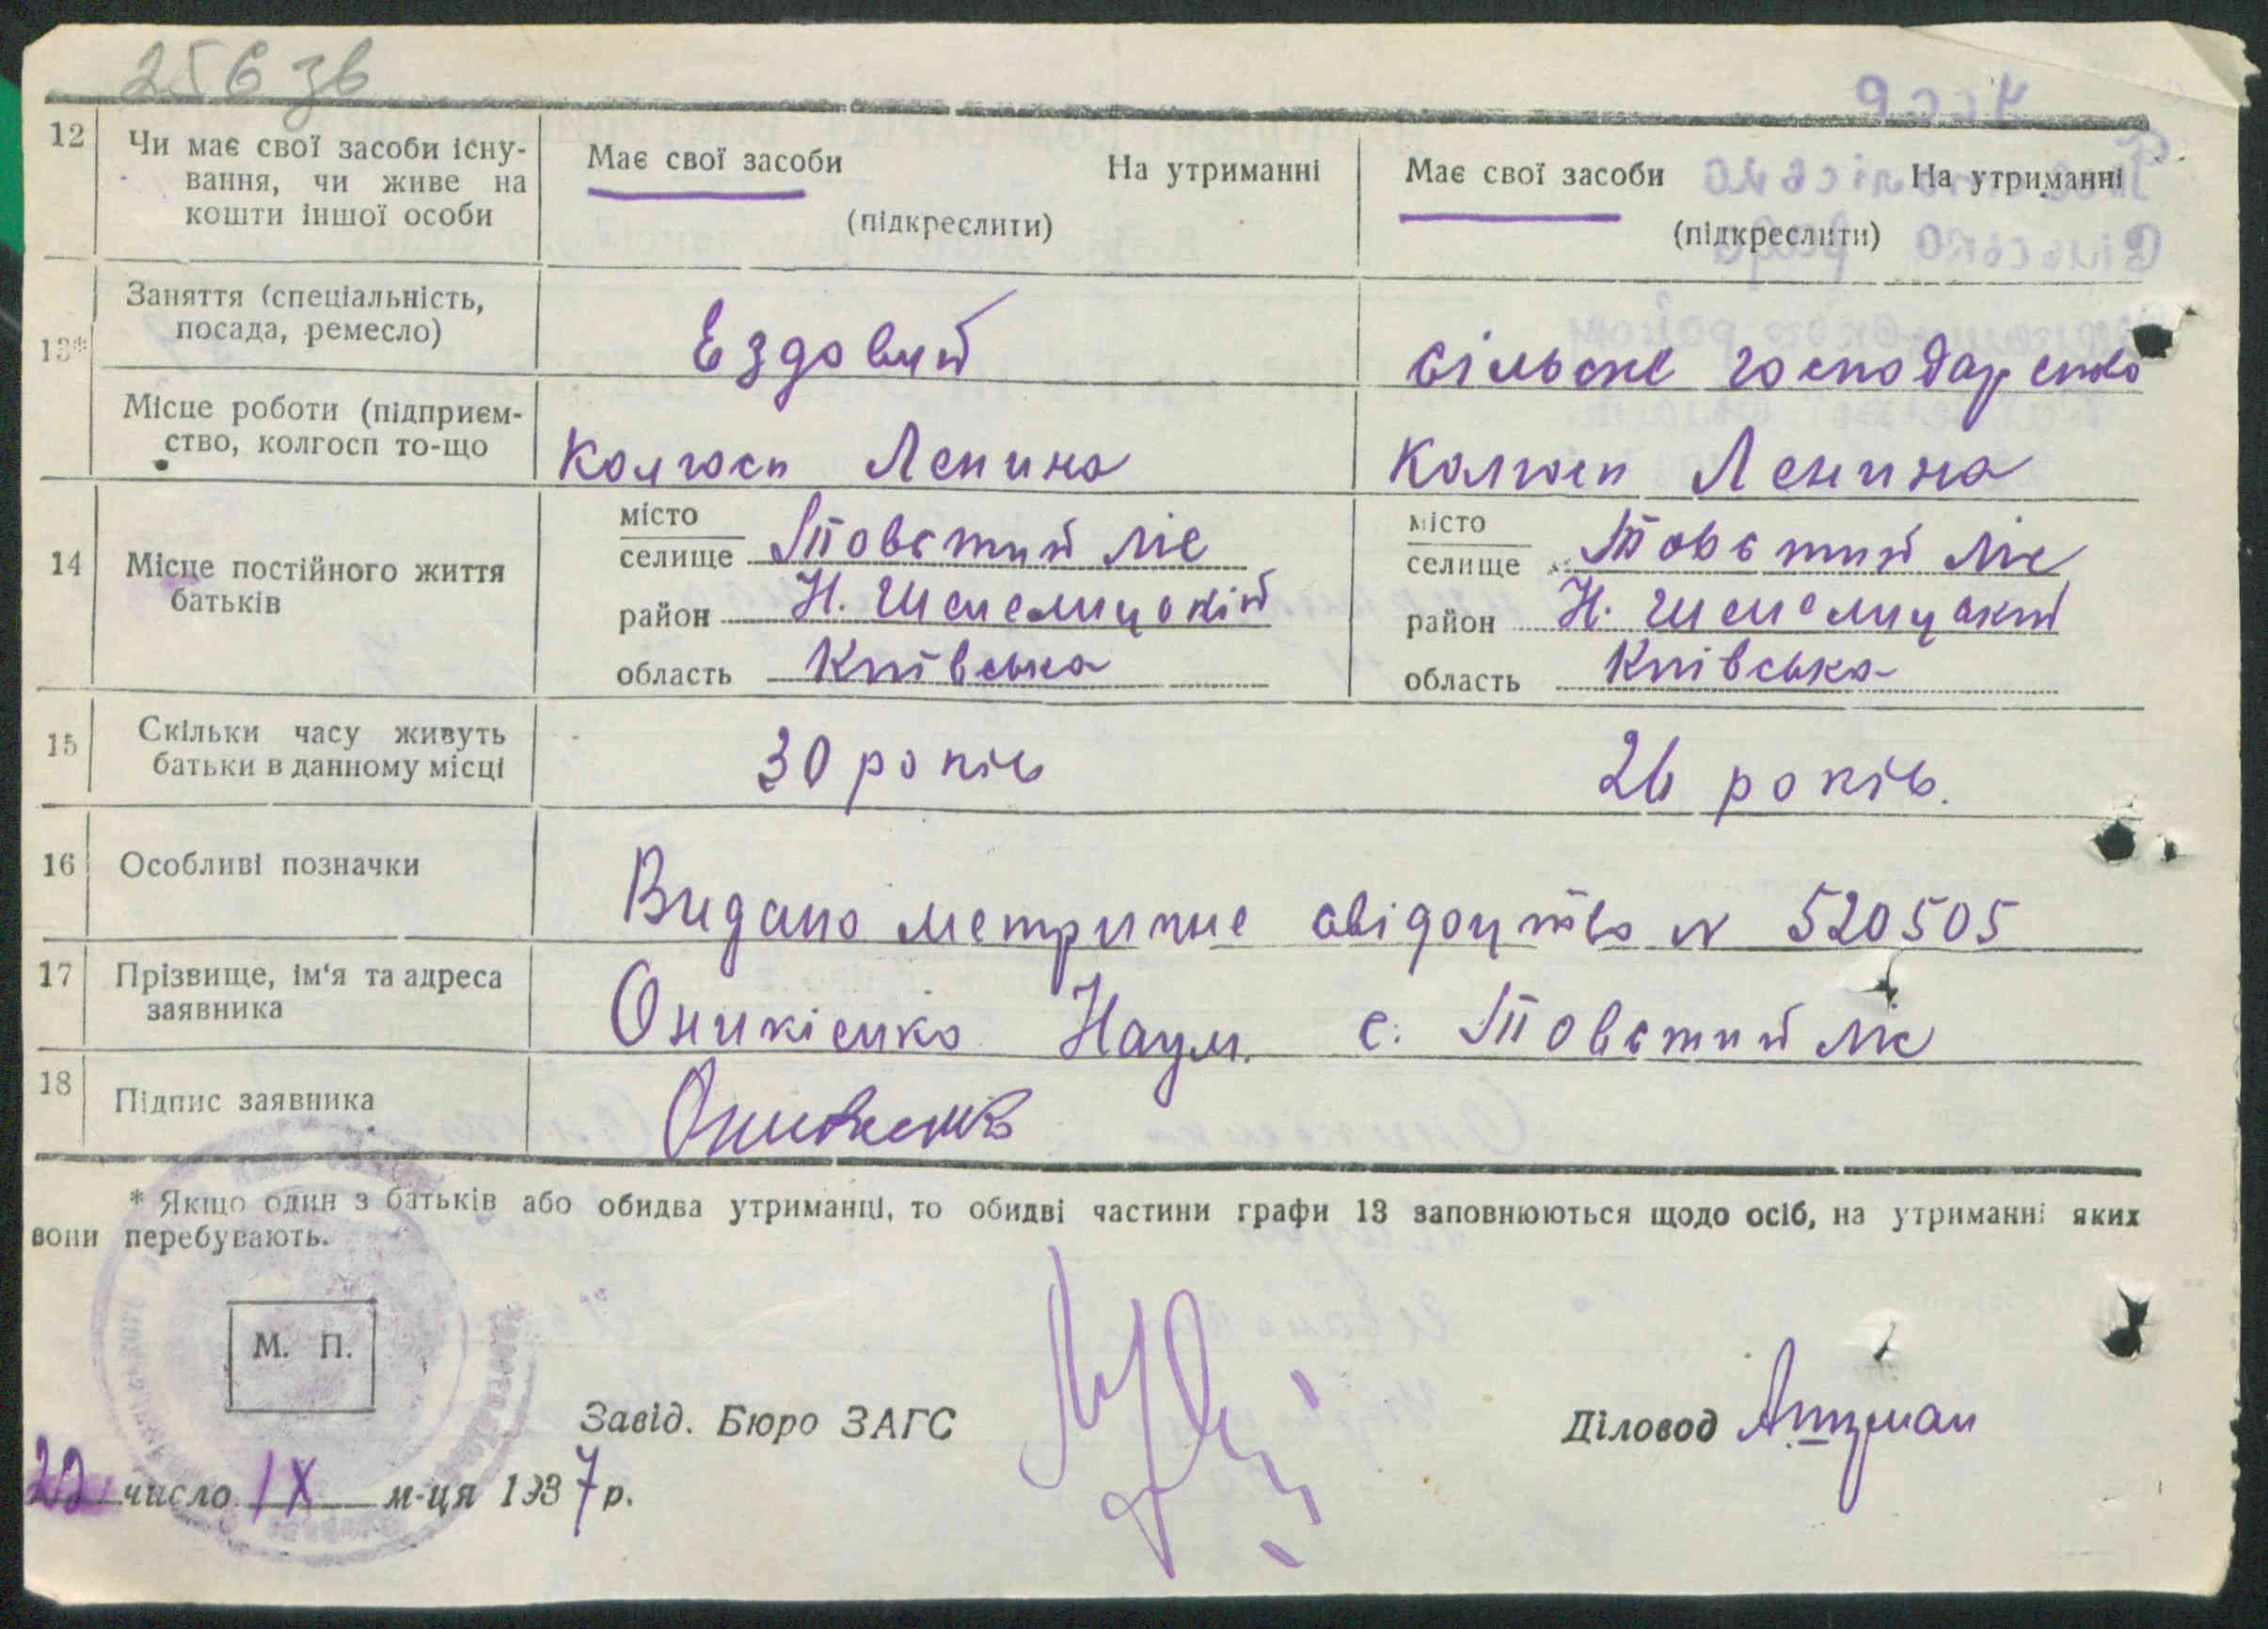 256 зв
12 Чи має свої засоби існу-
вання, чи живе на
кошти іншої особи
Має свої засоби На утриманні
(підкреслити)
Має свої засоби На утриманні
(підкреслити)
13*
Заняття (спеціальність,
посада, ремесло)
Ездовий
сільське господарство
Місце роботи (підприєм-
ство, колгосп то-що
Колгосп Ленина
Колгосп Ленина
14 Місце постійного життя
батьків
місто
селище Товстий ліс
район Н. Шепелицький
область Київська
місто
селище Товстий ліс
район Н. Шепелицький
область Київська
15 Скільки часу живуть
батьки в данному місці
30 років
26 років.
16 Особливі позначки
Видано метричне свідоцтво N 520505
17 Прізвище, ім'я та адреса
заявника
Оникієнко Наум. с. Товстий ліс
18 Підпис заявника
* Якщо один з батьків або обидва утриманці, то обидві частини графи 13 заповнюються щодо осіб, на утриманні яких
вони перебувають.
М. П.
Завід. Бюро ЗАГС
Діловод
22 число IX м-ця 1937 р.